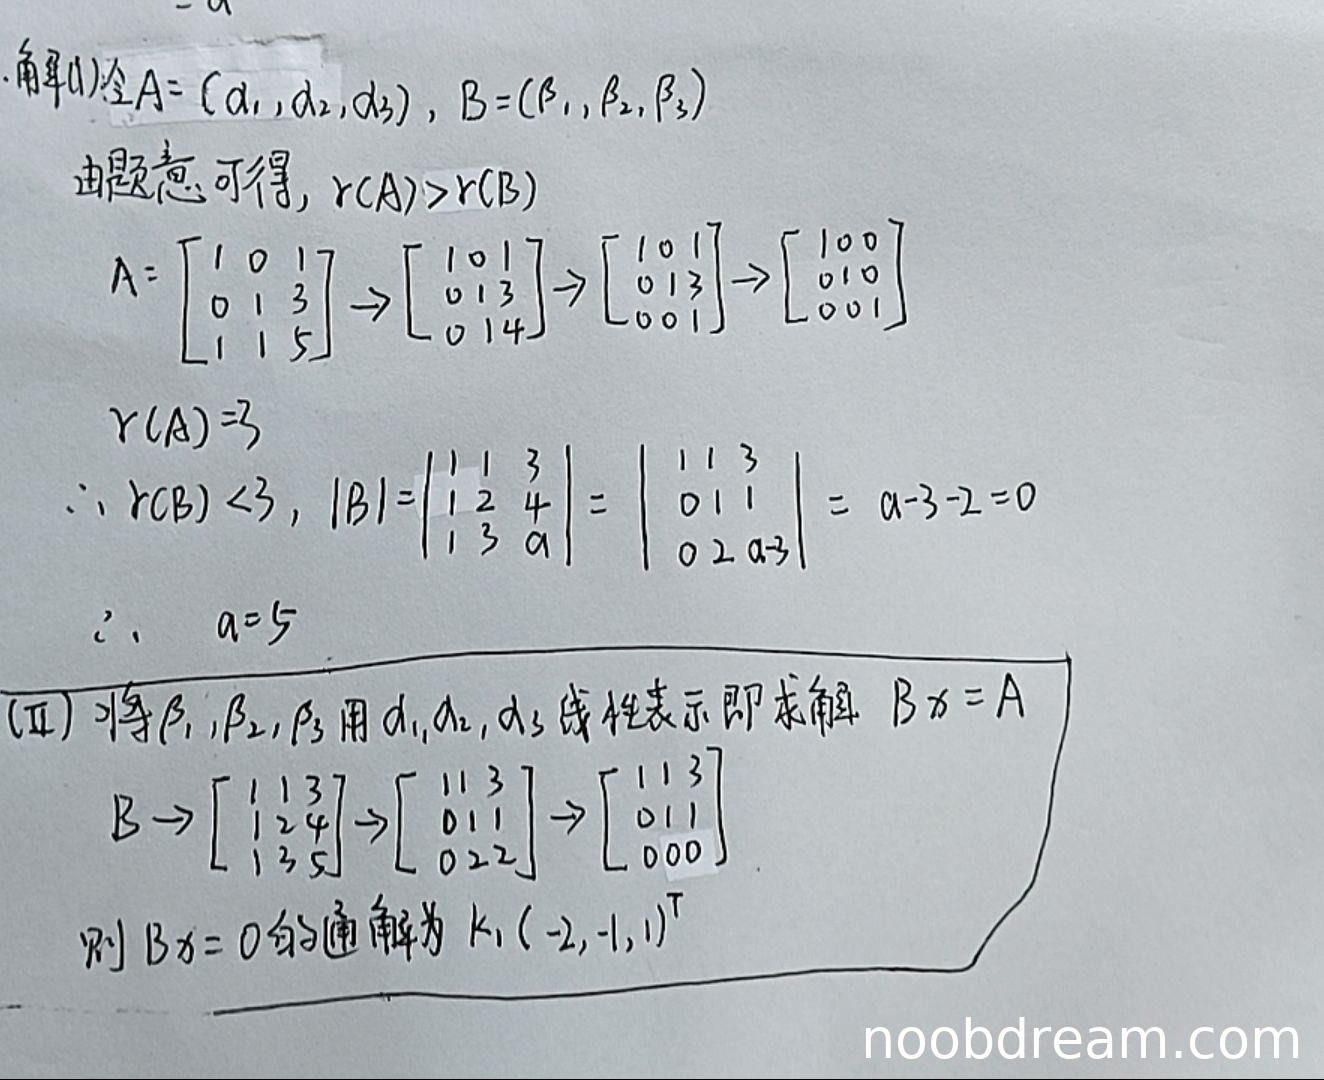 = a
解(1)令A=(α₁,α₂,α₃), B=(β₁,β₂,β₃)
由题意可得, r(A)>r(B)
A=[1 0 1; 0 1 3; 1 1 5]→[1 0 1; 0 1 3; 0 1 4]→[1 0 1; 0 1 3; 0 0 1]→[1 0 0; 0 1 0; 0 0 1]
r(A)=3
∴ r(B)<3, |B|=|1 1 3; 1 2 4; 1 3 a|=|1 1 3; 0 1 1; 0 2 a-3|= a-3-2=0
∴ a=5
(Ⅱ) 将β₁,β₂,β₃用α₁,α₂,α₃线性表示即求解 Bx=A
B→[1 1 3; 1 2 4; 1 3 5]→[1 1 3; 0 1 1; 0 2 2]→[1 1 3; 0 1 1; 0 0 0]
则Bx=0的通解为 k₁(-2,-1,1)ᵀ
noobdream.com